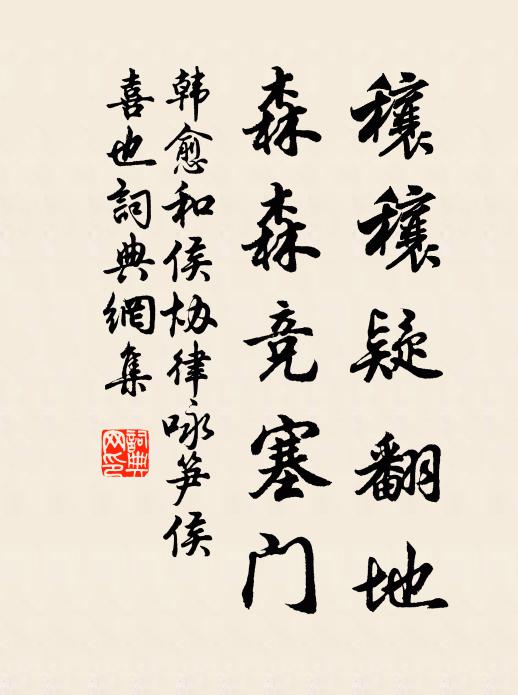 穰穰疑翻地
森森竞塞门
韩愈和侯协律咏笋侯
喜也詞典網集
詞典网印